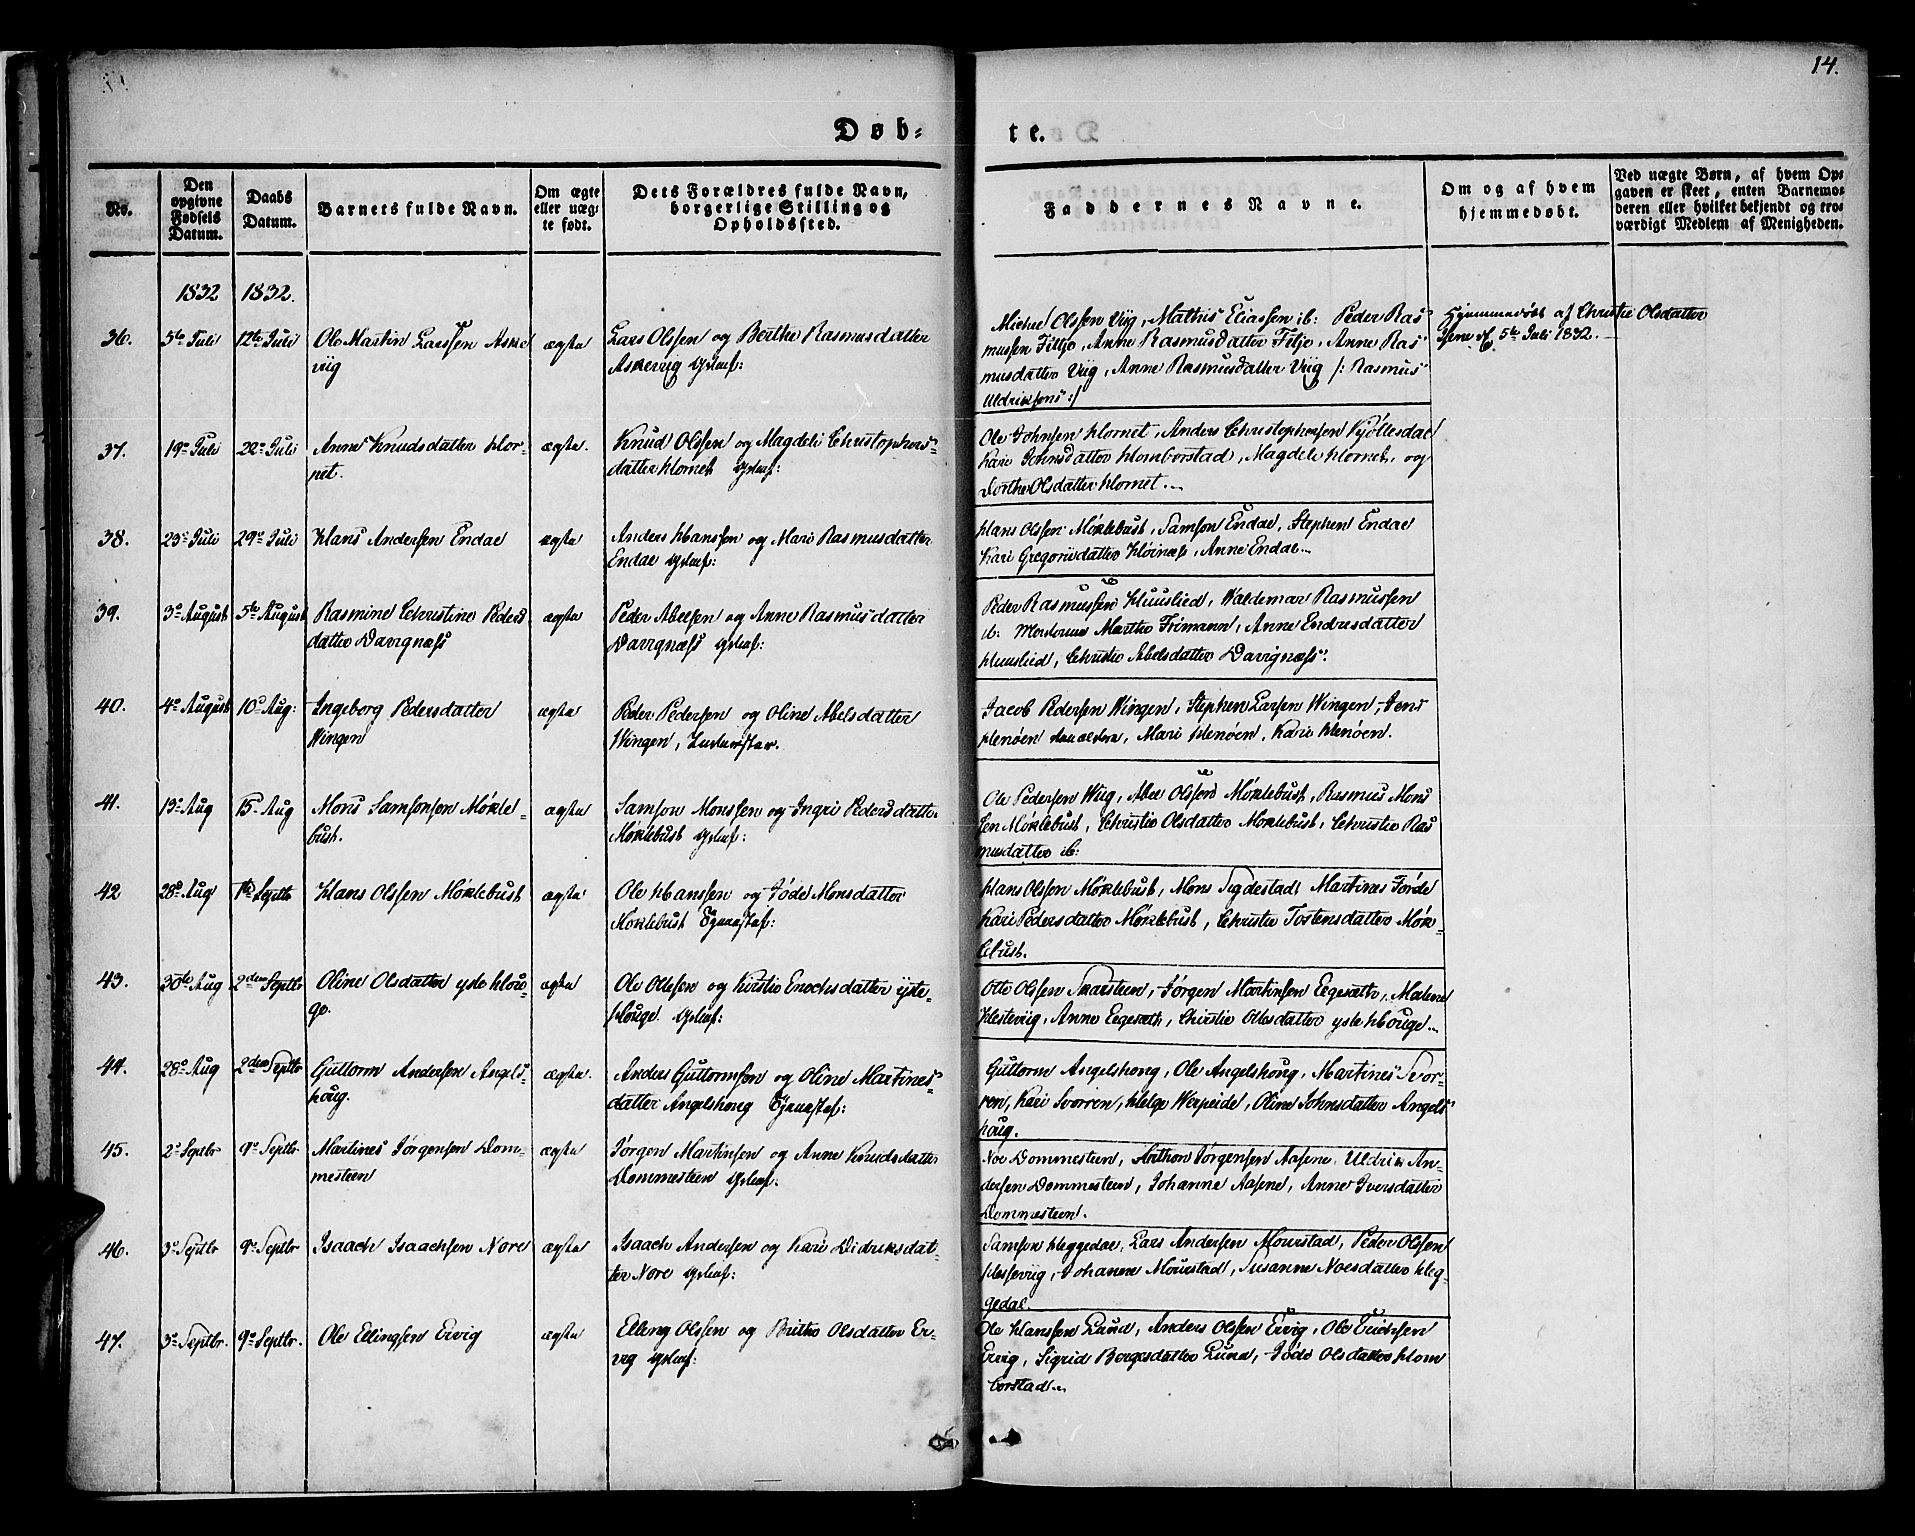 14.
Døb=
te.
No.
Den opgivne Fødsels Datum.
Daabs Datum.
Barnets fulde Navn.
Om ægte eller uæg= te født.
Dets Forældres fulde Navn, borgerlige Stilling og Opholdssted.
Faddernes Navne.
Om og af hvem hjemmedøbt.
Ved uægte Børn, af hvem Op= gaven er skeet, enten Barnemo= deren eller hvilket bekjendt og tro= værdigt Medlem af Menigheden.
1832 1832.
36. 5te Juli 12te Juli Ole Martin Larssen Aske
viig
ægte
Lars Olssen og Berthe Rasmusdatter
Askeviig
Michel Olssen Viig, Mathis Eliassen ib: Peder Ras
mussen Feltje, Anne Rasmusdatter Feltje, Anne Ras
musdatter Viig, Anne Rasmusdatter Viig /: Rasmus
Uldriksens :/
Hjemmedøbt af Christie Olsdatter
5te Juli 1832.
37. 19de Juli 22de Juli Anne Knudsdatter Hor-
net.
ægte.
Knud Olssen og Magdeli Christophers-
datter Hornet
Ole Johnsen Hornet, Anders Christophersen Kjøllesdal
Kari Johnsdatter Homborstad, Magdeli Hornet, og
Dorthe Olsdatter Hornet.
38. 23de Juli 29de Juli Hans Andersen Endal
ægte
Anders Hanssen og Mari Rasmusdatter
Endal
Hans Olssen Møklebust, Samson Endal, Stephen Endal
Kari Gregoriidatter Høinæs, Anne Endal.
39. 3de August 5te August Rasmine Christine Peders
datter Davignæss
ægte
Peder Abelsen og Anne Rasmusdatter
Davignæss
Peder Rasmussen Huuslied, Waldemar Rasmussen
ib. Martha Frimann, Anne Endresdatter
Huuslied, Christie Abelsdatter Davignæss.
40. 4de August 10de Aug: Ingeborg Pedersdatter
Wingen
ægte
Peder Pedersen og Oline Abelsdatter
Wingen,
Jacob Pedersen Wingen, Stephen Larsen Wingen, Jens
Henøen, Mari Henøen, Kari Henøen.
41. 13de Aug 15. Aug Mons Samsonsen Møkle-
bust.
ægte
Samson Monssen og Ingri Pedersdatter
Møklebust
Ole Pedersen Wiig, Abel Olssen Møklebust, Rasmus Mons
sen Møklebust, Christie Olsdatter Møklebust, Christie Ras
musdatter ib:
42 28de Aug Septbr Hans Olssen Møklebust
ægte
Ole Hanssen og Jøde Monsdatter
Møklebust
Hans Olssen Møklebust, Mons Sigdestad, Martines Førde
Kari Pedersdatter Møklebust, Christie Tostensdatter Møk-
lebust.
43. 30te Aug 2den Septbr Oline Olsdatter yste Hou-
ge.
ægte
Ole Ollesen og Kirstie Enochsdatter yste-
Houge
Otte Olssen Skarsteen, Jørgen Martinsen Eegesæth, Malene
Hesteviig, Anne Eegesæth, Christie Ollesdatter yste Houge
44. 28de Aug 2den Septbr Guttorm Andersen Angels-
houg.
ægte.
Anders Guttormsen og Oline Martines-
datter Angelshoug
Guttorm Angelshoug, Ole Angelshoug, Martines Svor-
ren, Kari Svorren, Helge Werpeide, Oline Johnsdatter Angels
houg.
45. 2de Septbr 9de Septbr Martines Jørgensen Dom-
mesteen
ægte
Jørgen Martinsen og Anne Knudsdatter
Dommesteen
Noe Dommesteen, Anthon Jørgensen Aasene, Uldrik An-
dersen Dommesteen, Johanne Aasene, Anne Iversdatter
Dommesteen.
46. 3de Septbr 9de Septbr Isaach Isaachsen Nore
ægte
Isaach Andersen og Kari Didriksdat-
ter Nore
Samson Heggedal, Lars Andersen Mourstad, Peder Olssen
Hesseviig, Johanne Mourstad, Susanne Noesdatter Heg-
gedal.
47. 3de Septbr. 9de Septbr. Ole Ellingsen Ervig
ægte
Elling Olssen og Brithe Olsdatter Er-
vig
Ole Hanssen Lund, Anders Olssen Ervig, Ole Erichsen
Ervig, Sigrid Børgesdatter Lund, Jøde Olsdatter Hom
borstad